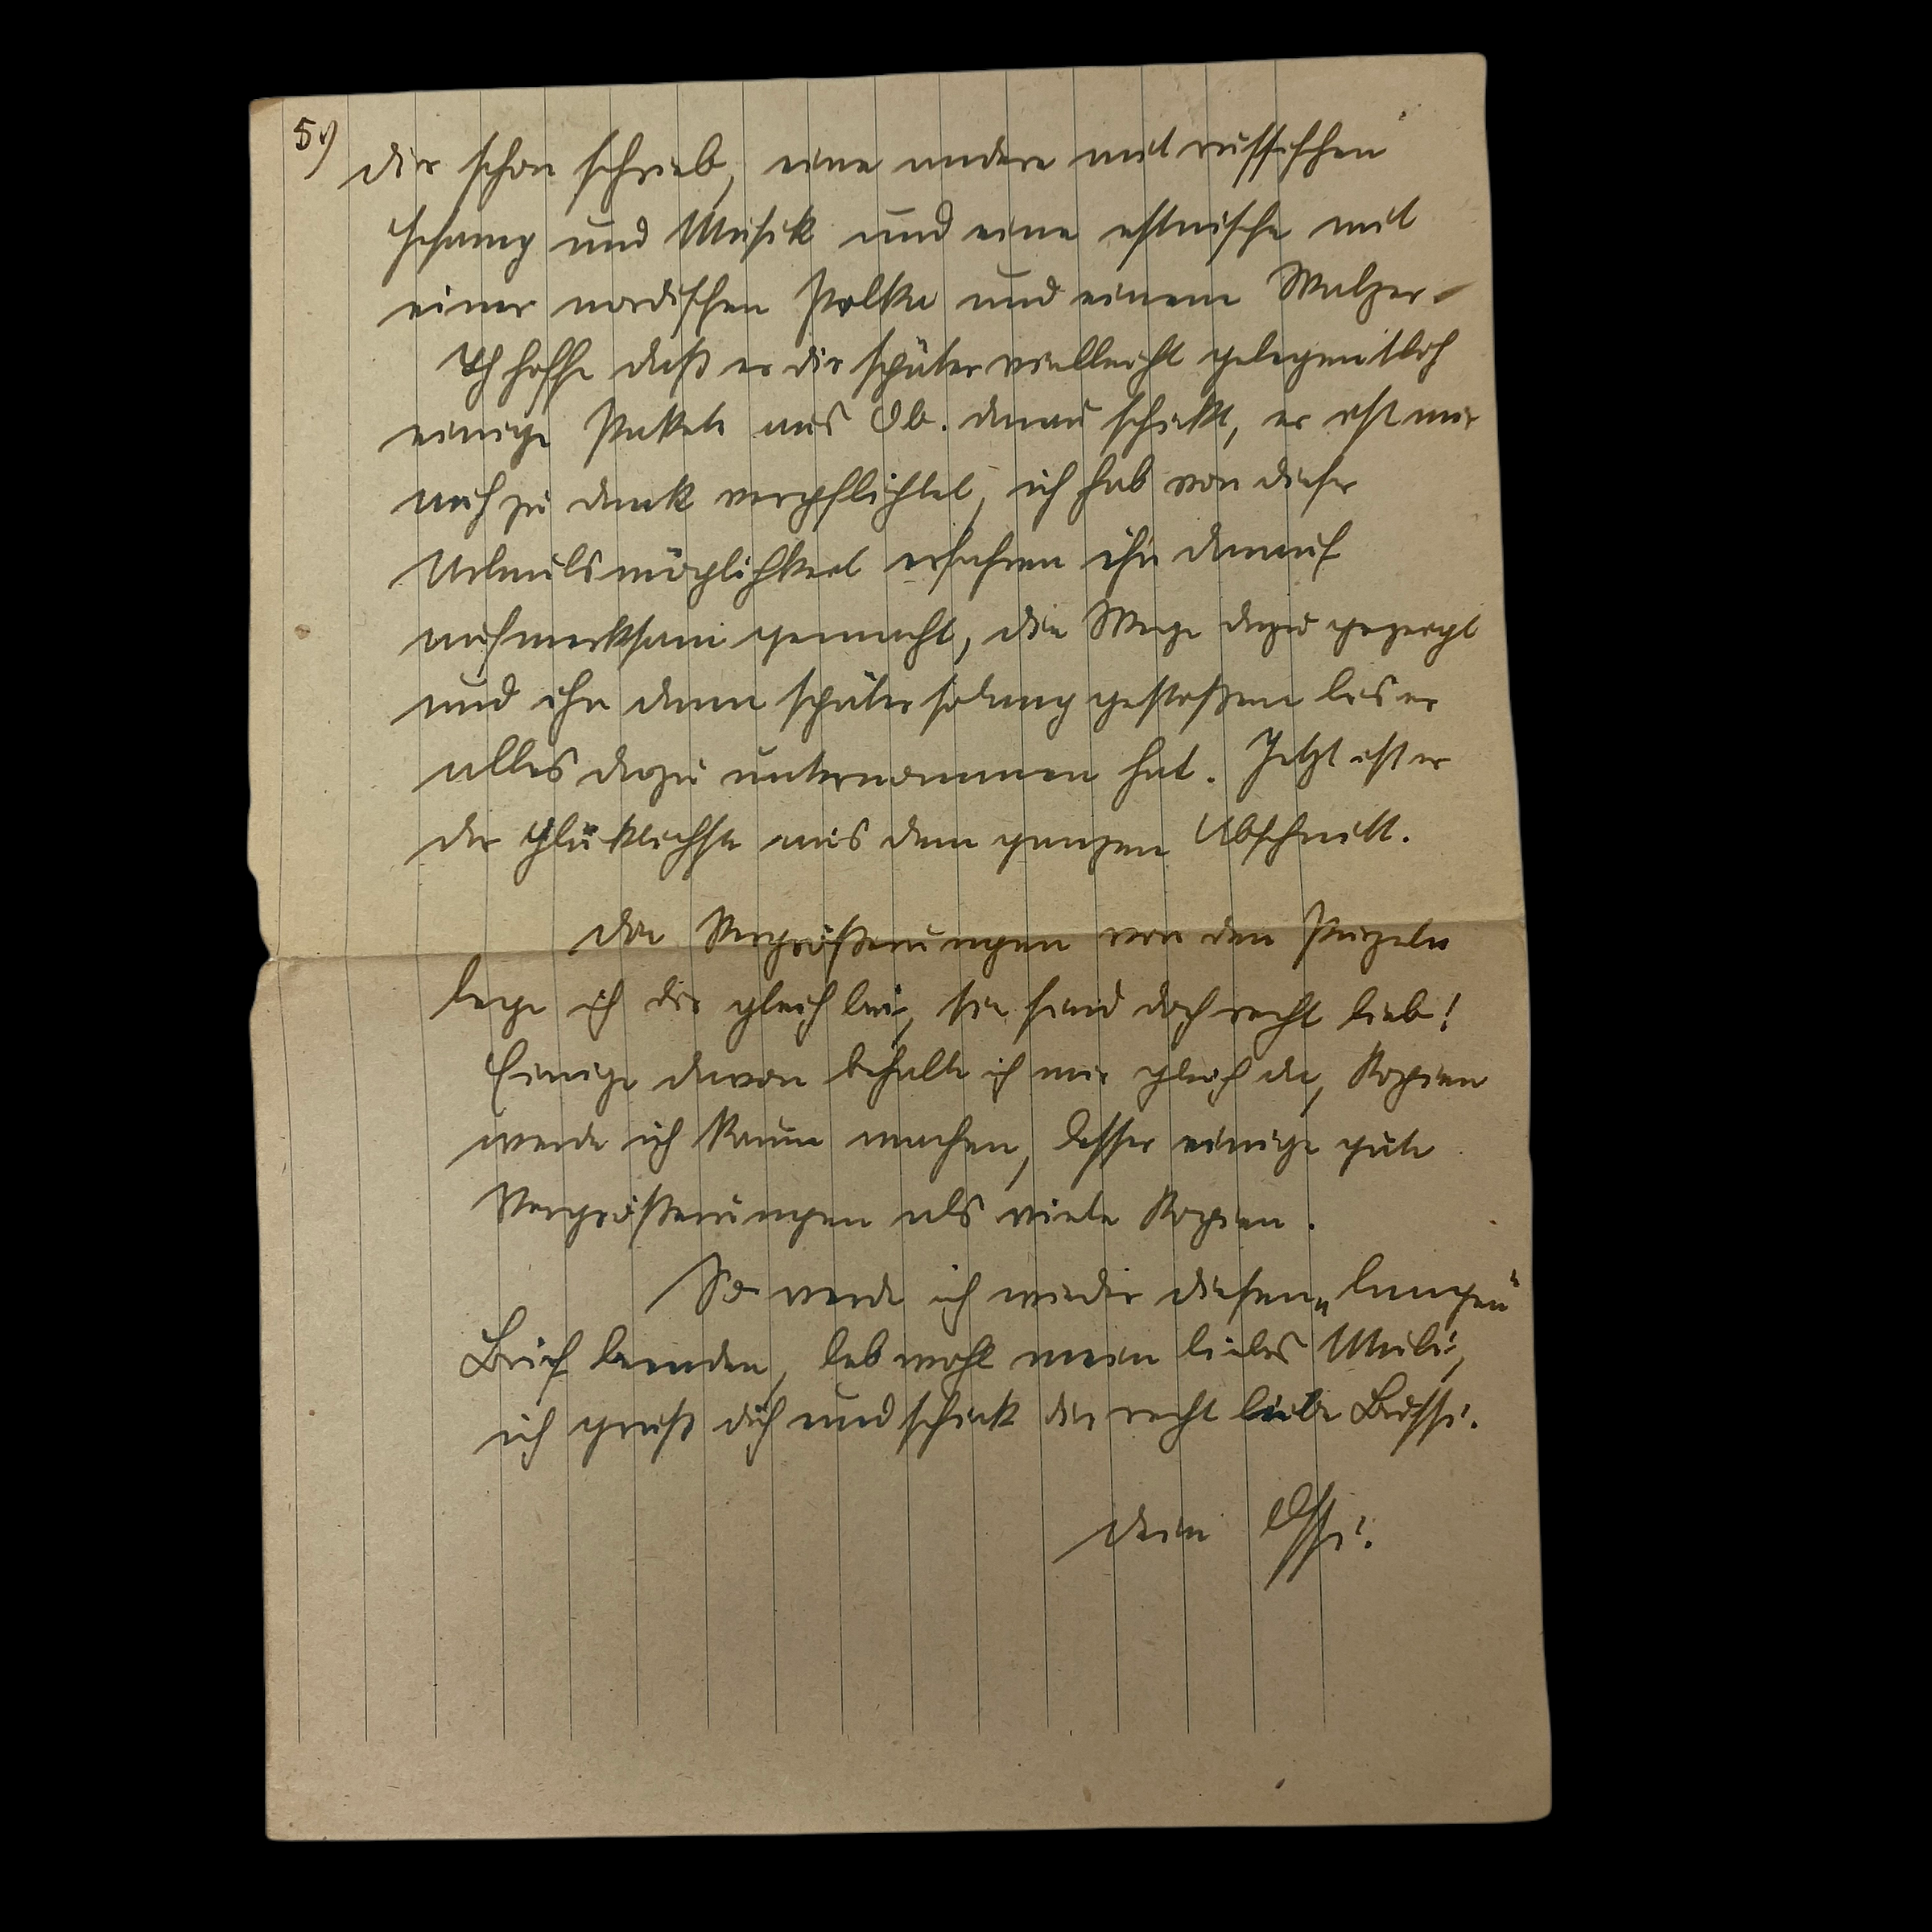 5.)
dir schon schrieb, eine andere mit russischen
Gesang und Musik und eine estnische mit
einer nordischen Polka und einem Walzer.
Ich hoffe daß er dir später vielleicht gelegentlich
einige Pakete aus Ob. donau schickt, er ist mir
auch zu dank verpflichtet, ich hab von dieser
Urlaubsmöglichkeit erfahren ihn darauf
aufmerksam gemacht, die Wege dazu gezeigt
und ihn dann später solang gestoßen bis er
alles dazu unternommen hat. Jetzt ist er
der glücklichste aus dem ganzen Abschnitt.
die Vergrößerungen von den Purzeln
lege ich dir gleich bei, sie sind doch recht lieb!
Einige davon behalte ich mir gleich da, Kopien
werde ich kaum machen, besser einige gute
Vergrößerungen als viele Kopien.
So werde ich wieder diesen „langen"
Brief beenden, leb wohl mein liebes Mubi,
ich grüß dich und schick dir recht liebe Bussi.
dein Ossi.